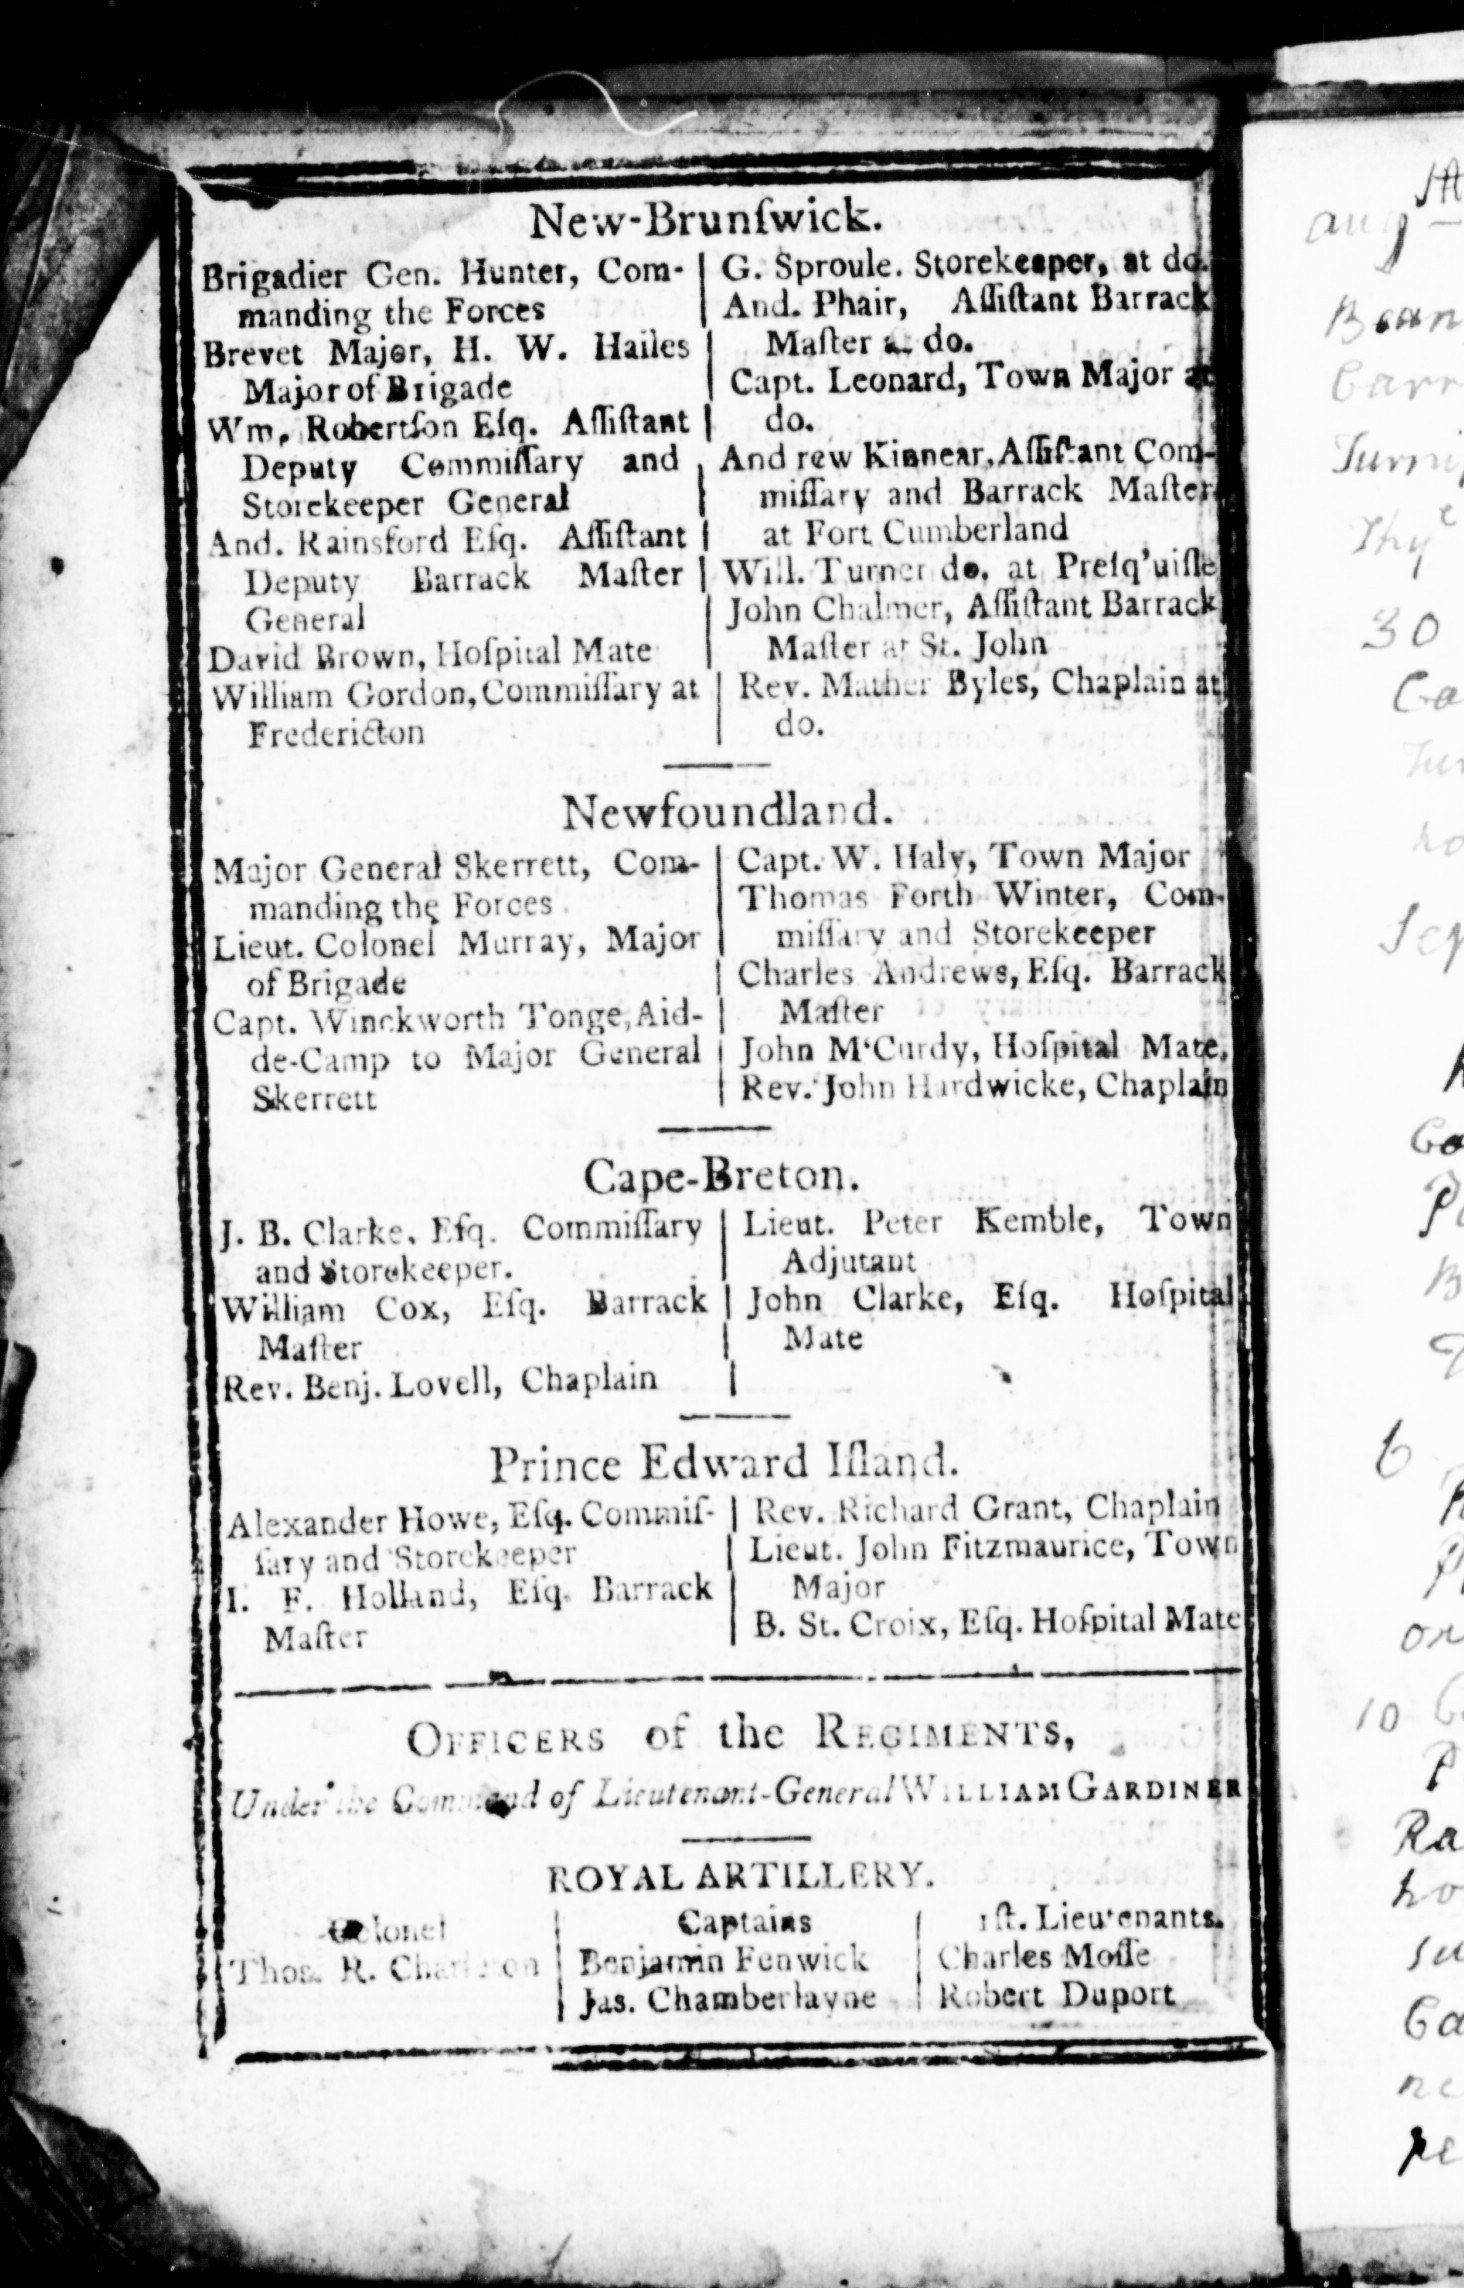 New-Brunſwick.
Brigadier Gen. Hunter, Com-
manding the Forces
Brevet Major, H. W. Hailes
Major of Brigade
Wm. Robertſon Eſq. Aſſiſtant
Deputy Commiſſary and
Storekeeper General
And. Rainsford Eſq. Aſſiſtant
Deputy Barrack Maſter
General
David Brown, Hoſpital Mate
William Gordon, Commiſſary at
Fredericton
G. Sproule. Storekeeper, at do.
And. Phair, Aſſiſtant Barrack
Maſter at do.
Capt. Leonard, Town Major at
do.
Andrew Kinnear, Aſſiſtant Com-
miſſary and Barrack Maſter
at Fort Cumberland
Will. Turner do. at Preſq'uiſle
John Chalmer, Aſſiſtant Barrack
Maſter at St. John
Rev. Mather Byles, Chaplain at
do.
Newfoundland.
Major General Skerrett, Com-
manding the Forces
Lieut. Colonel Murray, Major
of Brigade
Capt. Winckworth Tonge, Aid-
de-Camp to Major General
Skerrett
Capt. W. Haly, Town Major
Thomas Forth Winter, Com-
miſſary and Storekeeper
Charles Andrews, Eſq. Barrack
Maſter
John M‘Curdy, Hoſpital Mate.
Rev. John Hardwicke, Chaplain
Cape-Breton.
J. B. Clarke, Eſq. Commiſſary
and Storekeeper.
William Cox, Eſq. Barrack
Maſter
Rev. Benj. Lovell, Chaplain
Lieut. Peter Kemble, Town
Adjutant
John Clarke, Eſq. Hoſpital
Mate
Prince Edward Iſland.
Alexander Howe, Eſq. Commiſ-
ſary and Storekeeper
I. F. Holland, Eſq. Barrack
Maſter
Rev. Richard Grant, Chaplain
Lieut. John Fitzmaurice, Town
Major
B. St. Croix, Eſq. Hoſpital Mate
OFFICERS of the REGIMENTS,
Under the Command of Lieutenant-General WILLIAM GARDINER
ROYAL ARTILLERY.
Colonel
Thos. R. Charleton
Captains
Benjamin Fenwick
Jas. Chamberlayne
1ſt. Lieutenants.
Charles Moſſe
Robert Duport
30
6
10